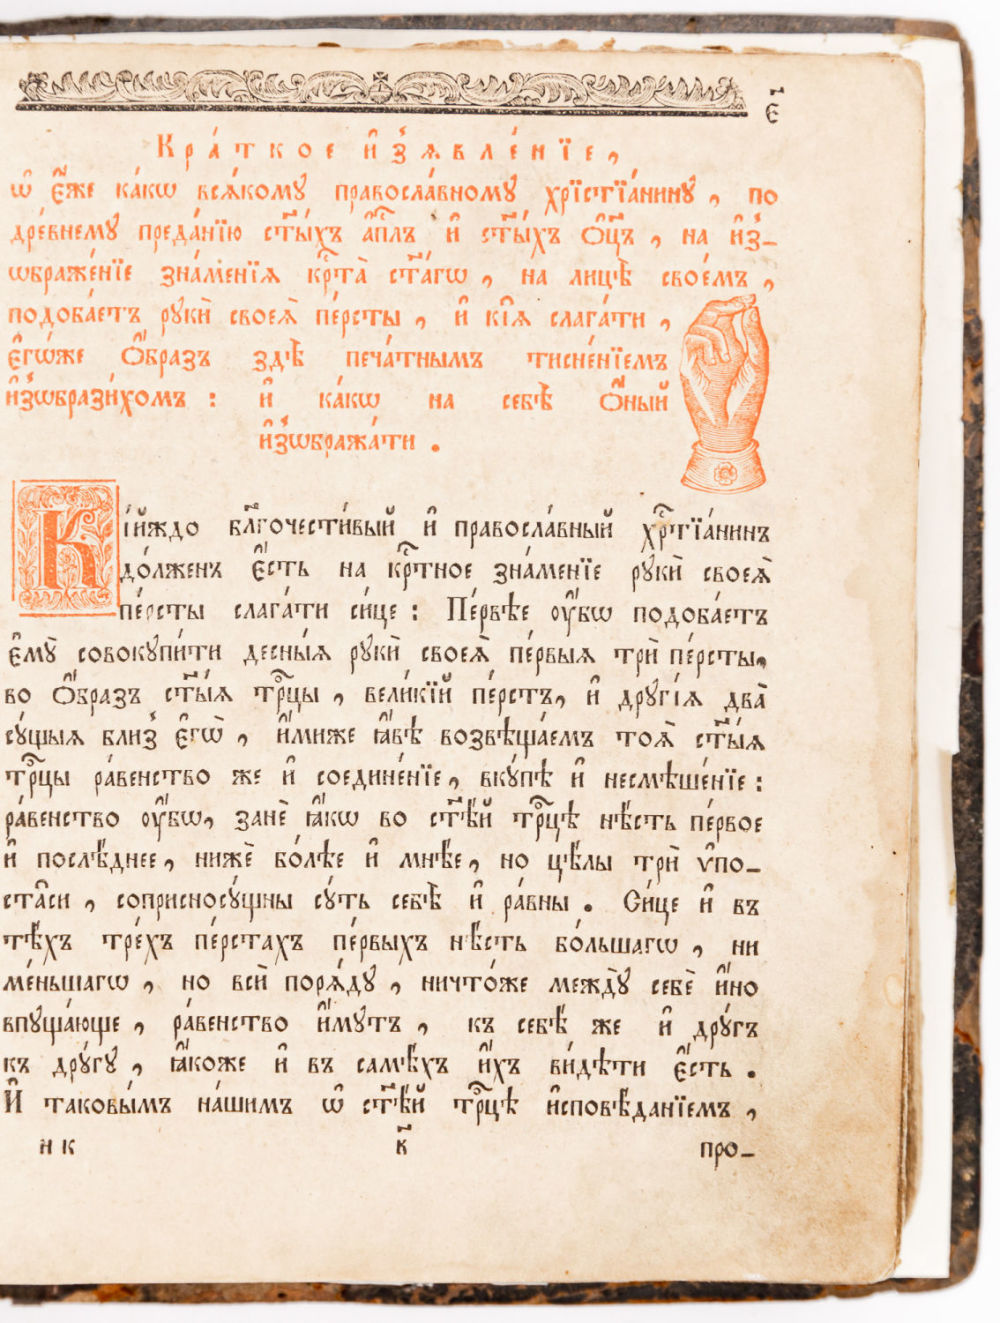 є҃
Кра́ткое и҆з̾ѧвле́нїе,
ѡ҆ є҆́же ка́кѡ всѧ́кому правосла́вному хрїстїа́нину, по
дре́внему преда́нїю ст҃ы́хъ а҆пⷭ҇лъ и҆ ст҃ы́хъ ѻ҆ц҃ъ, на и҆з̾-
ѡбраже́нїе зна́менїѧ крⷭ҇та̀ ст҃а́гѡ, на лицѣ̀ свое́мъ,
подоба́етъ рукѝ своеѧ̀ пе́рсты, и҆ кі́ѧ слага́ти,
є҆гѡ́же ѻ҆́бразъ здѣ̀ печа́тнымъ тисне́нїемъ
и҆з̾ѡбрази́хомъ: и҆ ка́кѡ на себѣ̀ ѻ҆́ный
и҆з̾ѡбража́ти.
Кі́йждо бл҃гочести́вый и҆ правосла́вный хрⷭ҇тїа́нинъ
до́лженъ є҆́сть на крⷭ҇тное зна́менїе рукѝ своеѧ̀
пе́рсты слага́ти си́це: Пе́рвѣе ᲂу҆́бѡ подоба́етъ
є҆му̀ совокупи́ти десны́ѧ рукѝ своеѧ̀ пе́рвыѧ трѝ пе́рсты,
во ѻ҆́бразъ ст҃ы́ѧ трⷪ҇цы, вели́кїй пе́рстъ, и҆ другі́ѧ два̀
су́щыѧ близ̾ є҆гѡ̀, и҆́миже ꙗ҆́вѣ возвѣща́емъ тоѧ̀ ст҃ы́ѧ
трⷪ҇цы ра́венство же и҆ соедине́нїе, вку́пѣ и҆ несмѣше́нїе:
ра́венство ᲂу҆́бѡ, занѐ ꙗ҆́кѡ во ст҃ѣ́й трⷪ҇цѣ нѣ́сть пе́рвое
и҆ послѣ́днее, нижѐ бо́лѣе и҆ мнѣ́е, но цѣ́лы трѝ ѵ҆по-
ста̑си, соприсносу́щны су́ть себѣ̀ и҆ ра́вны. Си́це и҆ въ
тѣ́хъ тре́хъ пе́рстахъ пе́рвыхъ нѣ́сть бо́льшагѡ, ни
ме́ньшагѡ, но всѝ порѧ́ду, ничто́же между̀ себѐ и҆́но
впуща́юще, ра́венство и҆́мутъ, къ себѣ́ же и҆ дру́гъ
къ дру́гу, ꙗ҆́коже и҆ въ самѣ́хъ и҆́хъ ви́дѣти є҆́сть.
И҆ таковы́мъ на́шимъ ѡ҆ ст҃ѣ́й трⷪ҇цѣ и҆сповѣ́данїемъ,
н к к҃ про-